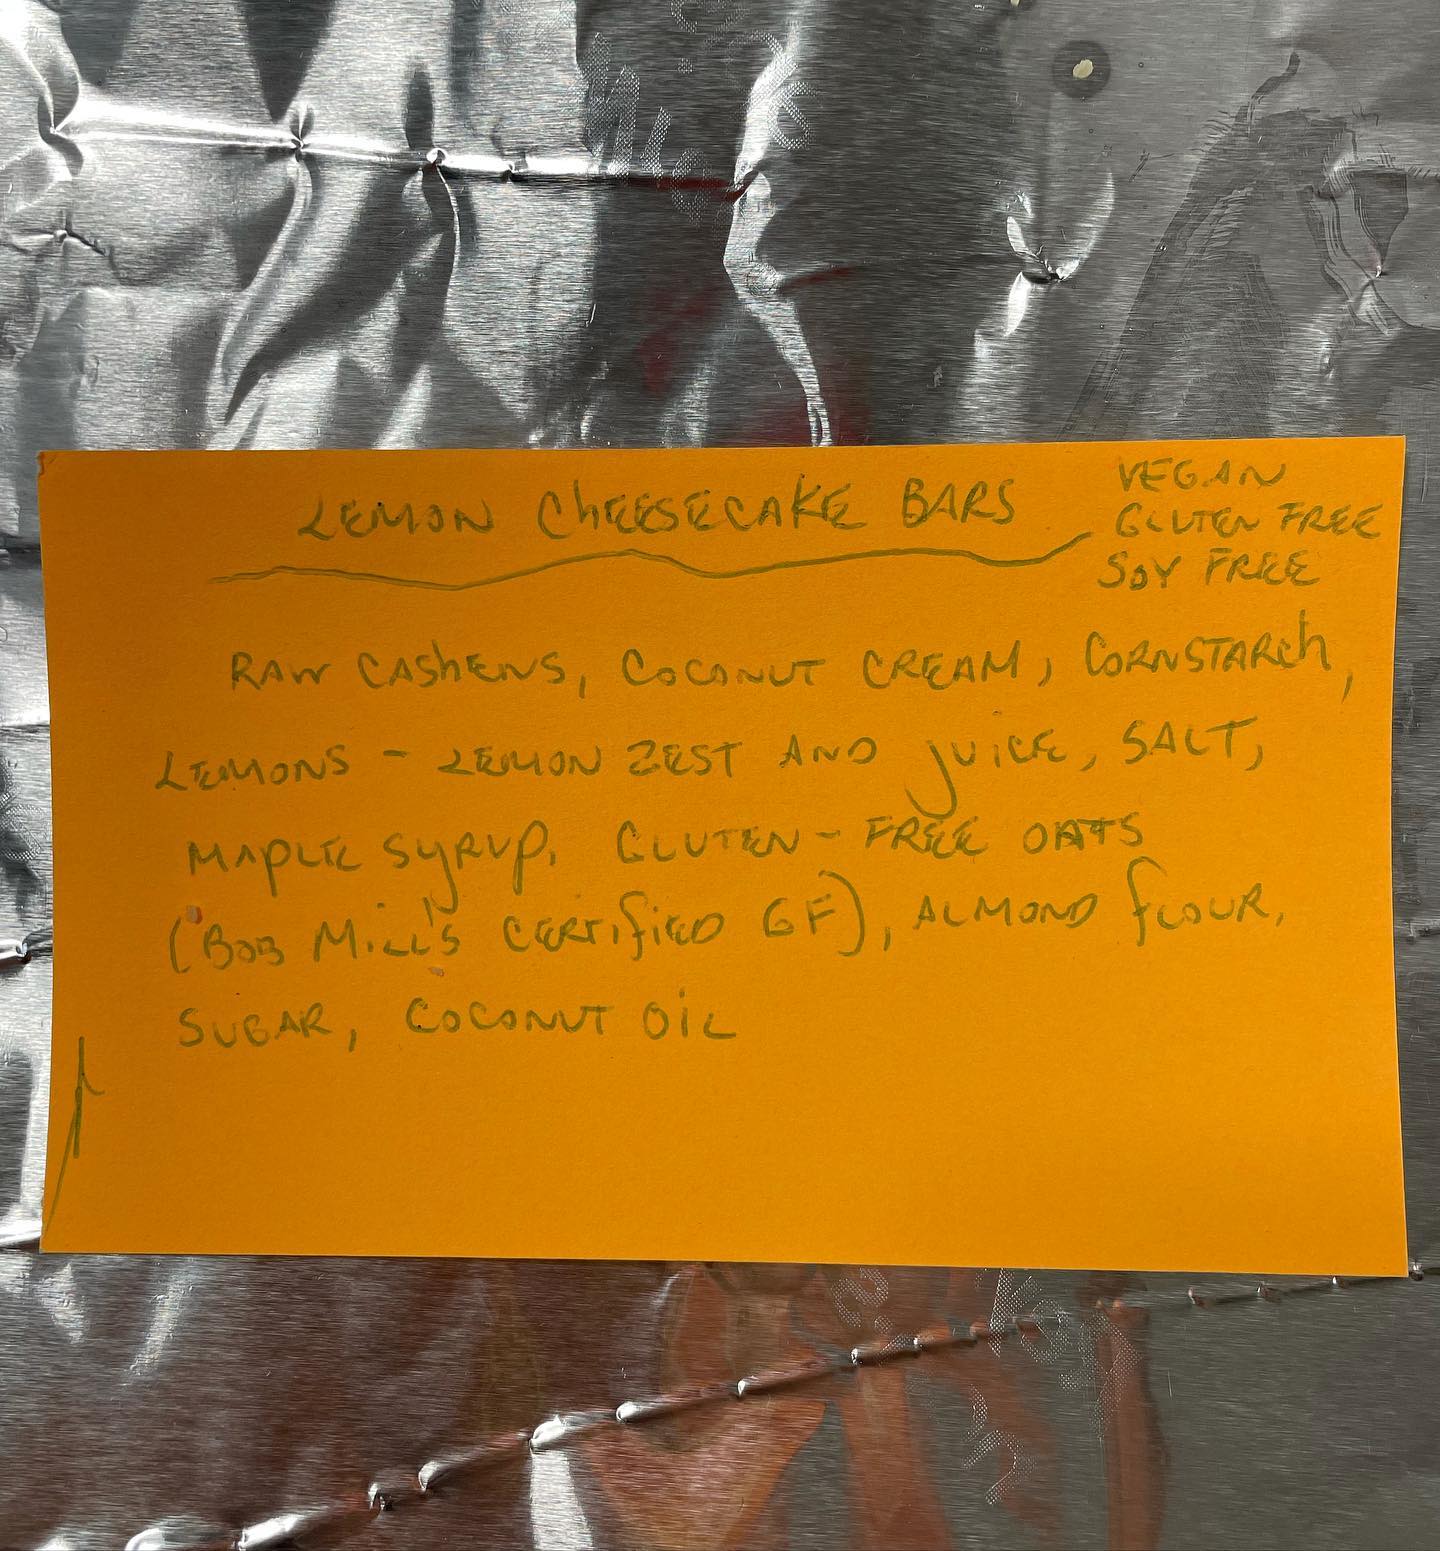 LEMON CHEESECAKE BARS
VEGAN
GLUTEN FREE
SOY FREE
RAW CASHEWS, COCONUT CREAM, CORNSTARCH,
LEMONS - LEMON ZEST AND JUICE, SALT,
MAPLE SYRUP, GLUTEN-FREE OATS
(BOB MILL'S CERTIFIED GF), ALMOND FLOUR,
SUGAR, COCONUT OIL